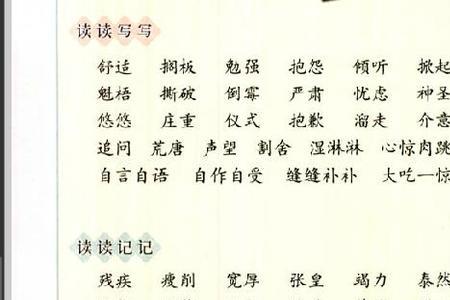 读读写写
舒适 搁板 勉强 抱怨 倾听 掀起
魁梧 撕破 倒霉 严肃 忧虑 神圣
悠悠 庄重 仪式 抱歉 溜走 介意
追问 荒唐 声望 割舍 湿淋淋 心惊肉跳
自言自语 自作自受 缝缝补补 大吃一惊
读读记记
残疾 瘦削 宽厚 张皇 竭力 泰然